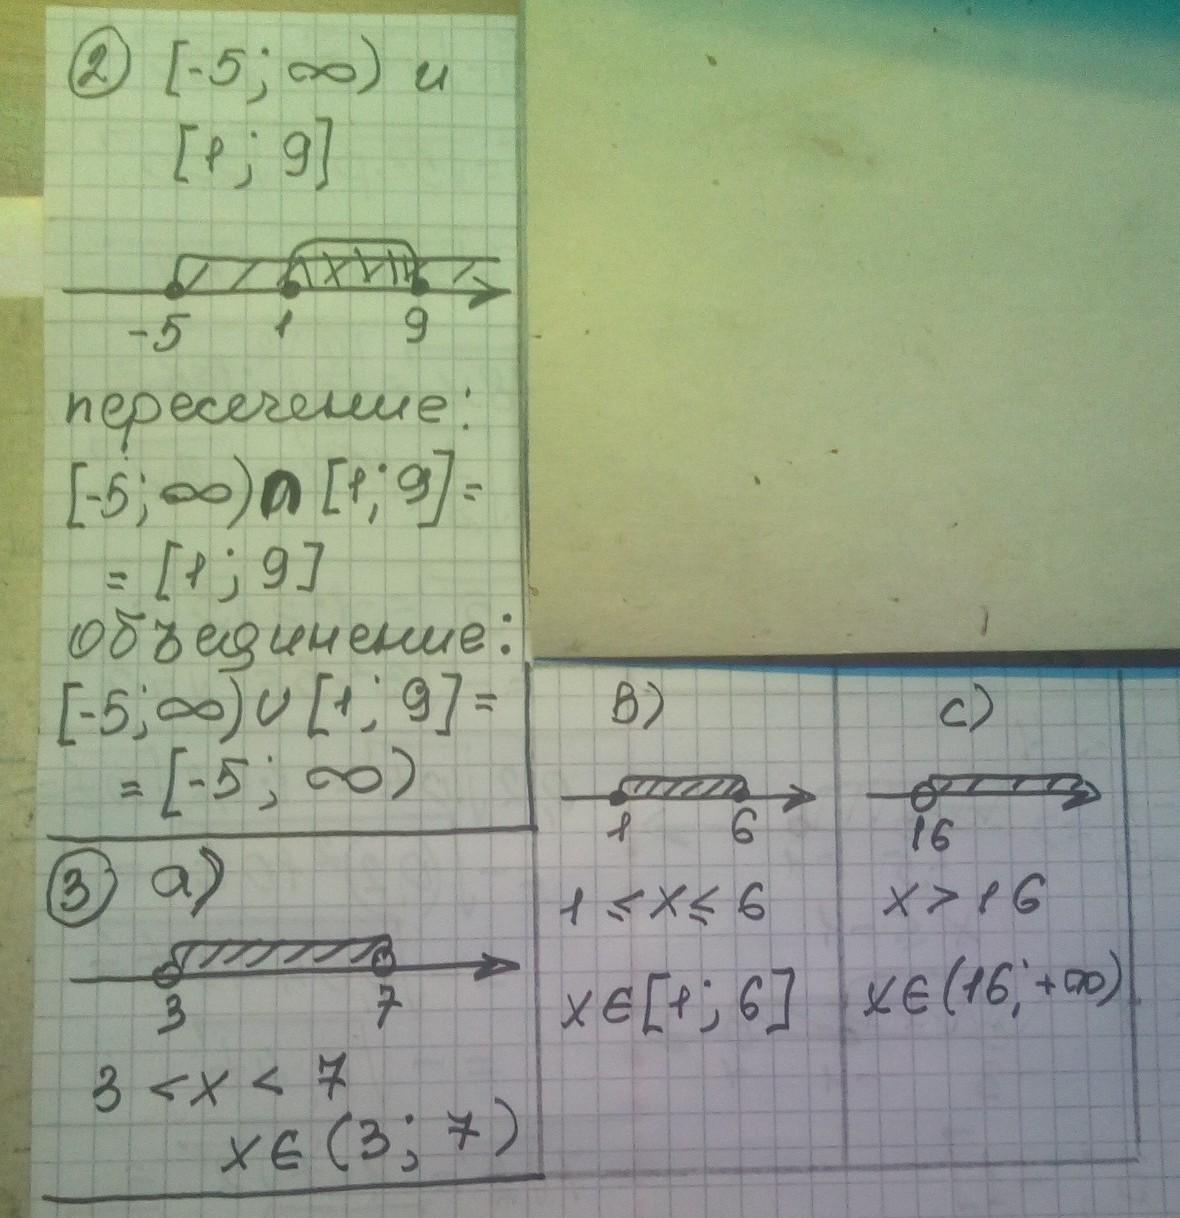 2 [-5; ∞) и
[1; 9]
-5 1 9
пересечение:
[-5; ∞) ∩ [1; 9] =
= [1; 9]
объединение:
[-5; ∞) ∪ [1; 9] =
= [-5; ∞)
3 a)
3 7
3 < x < 7
x ∈ (3; 7)
B)
1 6
1 ≤ x ≤ 6
x ∈ [1; 6]
C)
16
x > 16
x ∈ (16; +∞)